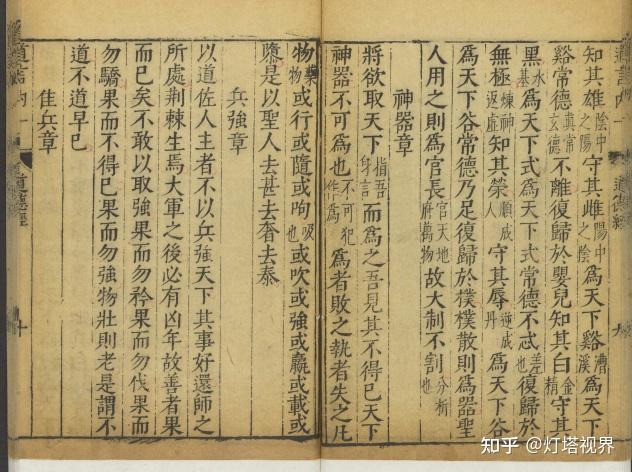 知其雄陰中之陽守其雌陽中之陰為天下谿漕溪為天下
谿常德真常玄德不離復歸於嬰兒知其白金精守其
黑水基為天下式為天下式常德不忒差也復歸於
無極煉神返虛知其榮順成人守其辱逆成丹為天下谷
為天下谷常德乃足復歸於樸樸散則為器聖
人用之則為官長官天地府萬物故大制不割分析也
神器章
將欲取天下指吾身言而為之吾見其不得已天下
神器不可為也不可犯作為為者敗之執者失之凡
物藥物或行或隨或呴吸也或吹或強或羸或載或
隳是以聖人去甚去奢去泰
兵強章
以道佐人主者不以兵強天下其事好還師之
所處荊棘生焉大軍之後必有凶年故善者果
而已矣不敢以取強果而勿矜果而勿伐果而
勿驕果而不得已果而勿強物壯則老是謂不
道不道早已
佳兵章
道言內一 道德經 十
知乎 @灯塔视界